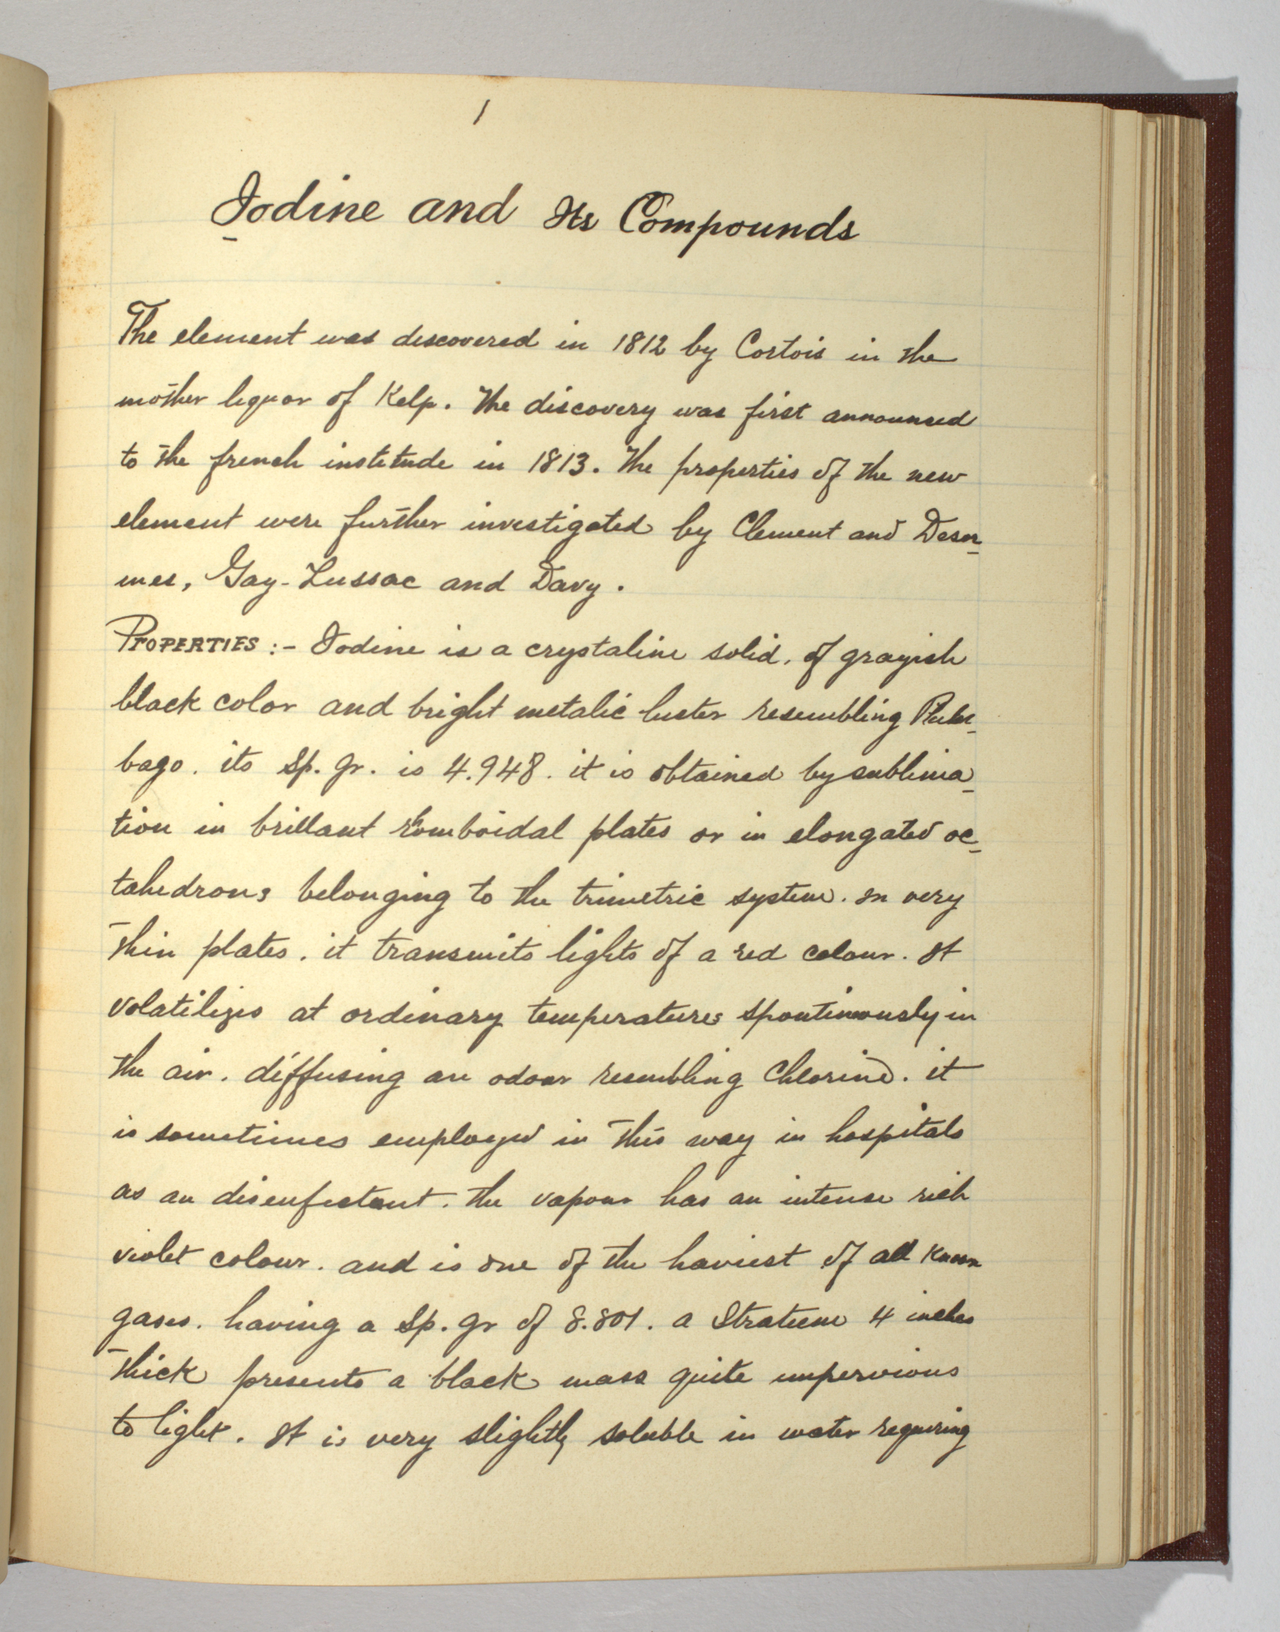 1
Iodine and Its Compounds
The element was discovered in 1812 by Cortois in the
mother liquor of Kelp. The discovery was first announsed
to the french institude in 1813. The properties of the new
element were further investigated by Clement and Desor-
mes, Gay-Lussac and Davy.
PROPERTIES:- Iodine is a crystaline solid. of grayish
black color and bright metalic luster resembling Plum-
bago. its Sp. Gr. is 4.948. it is obtained by sublima-
tion in brillant rhomboidal plates or in elongated oc-
tahedrons belonging to the trimetric system. In very
thin plates. it transmits lights of a red colour. It
volatilizes at ordinary temperatures spontinously in
the air. diffusing an odour resembling Chlorine. it
is sometimes employed in this way in hospitals
as an disenfectant. the vapour has an intense rich
violet colour. and is one of the haviest of all known
gases. having a Sp. gr of 8.801. a Stratum 4 inches
thick presents a black mass quite impervious
to light. It is very slightly soluble in water requiring